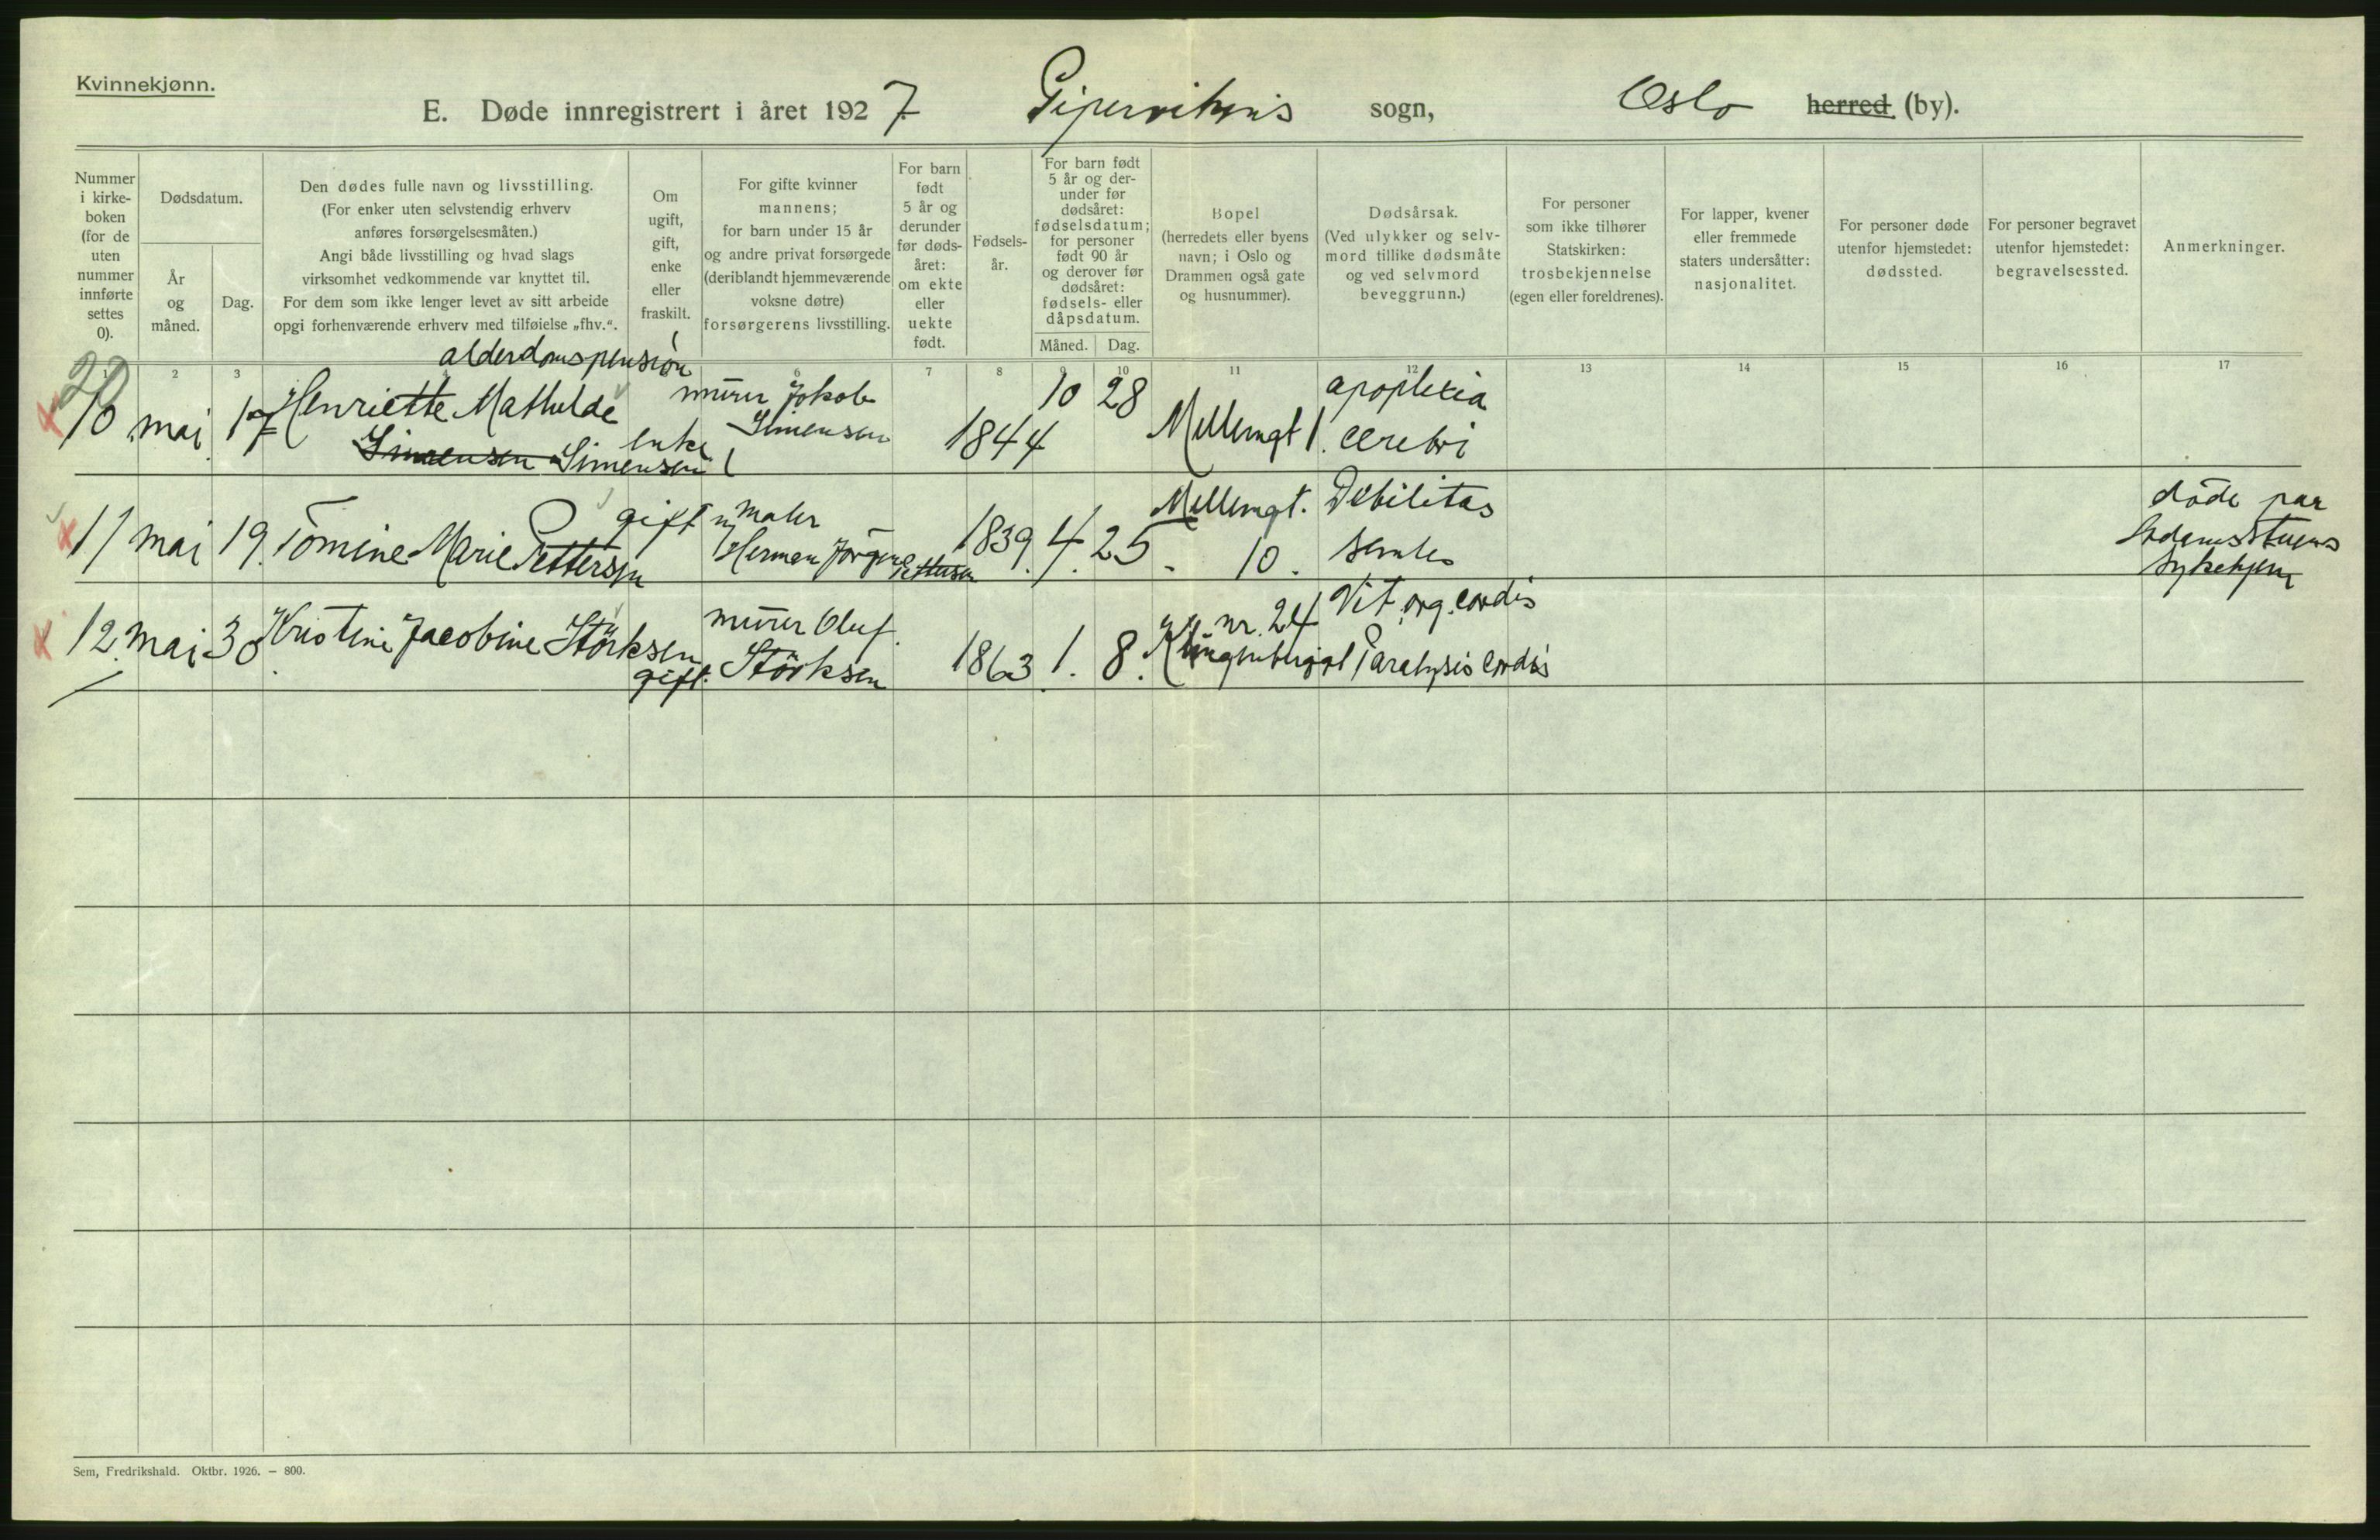 Kvinnekjønn.
E. Døde innregistrert i året 1927. Pipervikens sogn, Oslo herred (by).
Nummer
i kirke-
boken
(for de
uten
nummer
innførte
settes
0).
Dødsdatum.
År
og
måned.
Dag.
Den dødes fulle navn og livsstilling.
(For enker uten selvstendig erhverv
anføres forsørgelsesmåten.)
Angi både livsstilling og hvad slags
virksomhet vedkommende var knyttet til.
For dem som ikke lenger levet av sitt arbeide
opgi forhenværende erhverv med tilføielse „fhv.“.
Om
ugift,
gift,
enke
eller
fraskilt.
For gifte kvinner
mannens;
for barn under 15 år
og andre privat forsørgede
(deriblandt hjemmeværende
voksne døtre)
forsørgerens livsstilling.
For barn
født
5 år og
derunder
før døds-
året:
om ekte
eller
uekte
født.
Fødsels-
år.
For barn født
5 år og der-
under før
dødsåret:
fødselsdatum;
for personer
født 90 år
og derover før
dødsåret:
fødsels- eller
dåpsdatum.
Måned. Dag.
Bopel
(herredets eller byens
navn; i Oslo og
Drammen også gate
og husnummer).
Dødsårsak.
(Ved ulykker og selv-
mord tillike dødsmåte
og ved selvmord
beveggrunn.)
For personer
som ikke tilhører
Statskirken:
trosbekjennelse
(egen eller foreldrenes).
For lapper, kvener
eller fremmede
staters undersåtter:
nasjonalitet.
For personer døde
utenfor hjemstedet:
dødssted.
For personer begravet
utenfor hjemstedet:
begravelsessted.
Anmerkninger.
1 2 3 6 7 8 9 10 11 12 13 14 15 16 17
20
alderdomspension
10 mai 17 Henriette Mathilde
Simensen Simensen
enke
murer Jokob
Simensen
1844
10 28
Mellemgt 1.
apoplexia
cerebri
11 mai 19. Tomine Marie Pettersen
gift
maler
Herman Jørgen
Pettersen
1839. 4. 25.
Mellemgt.
10.
Debilitas
senilis
døde paa
Adamsstuens
sykehjem
12. mai 30. Kristine Jacobine Störksen
gift.
murer Oluf.
Störksen
1863 1. 8.
nr. 24
Klingenberggt
Vit. org. cordis
Paralysis cordis
Sem, Fredrikshald. Oktbr. 1926. – 800.